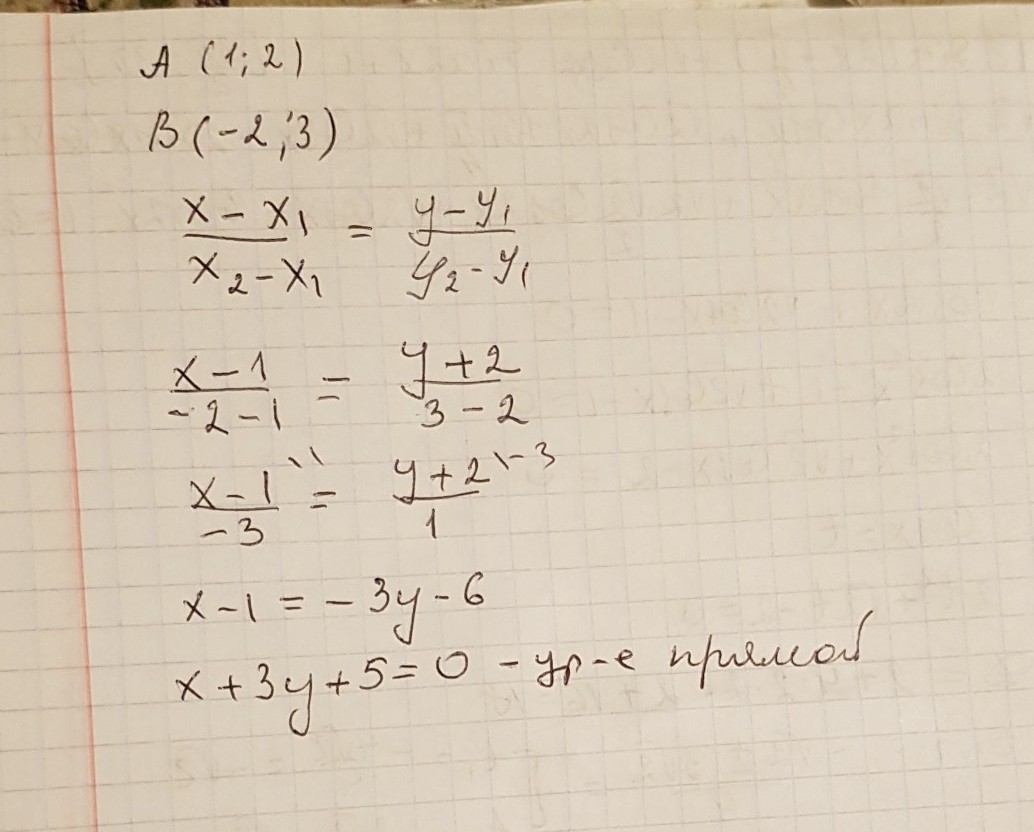 A (1; 2)
B (-2; 3)
(x - x₁)/(x₂ - x₁) = (y - y₁)/(y₂ - y₁)
(x - 1)/(-2 - 1) = (y + 2)/(3 - 2)
(x - 1)\¹/(-3) = (y + 2)\⁻³/1
x - 1 = - 3y - 6
x + 3y + 5 = 0 - ур-е прямой